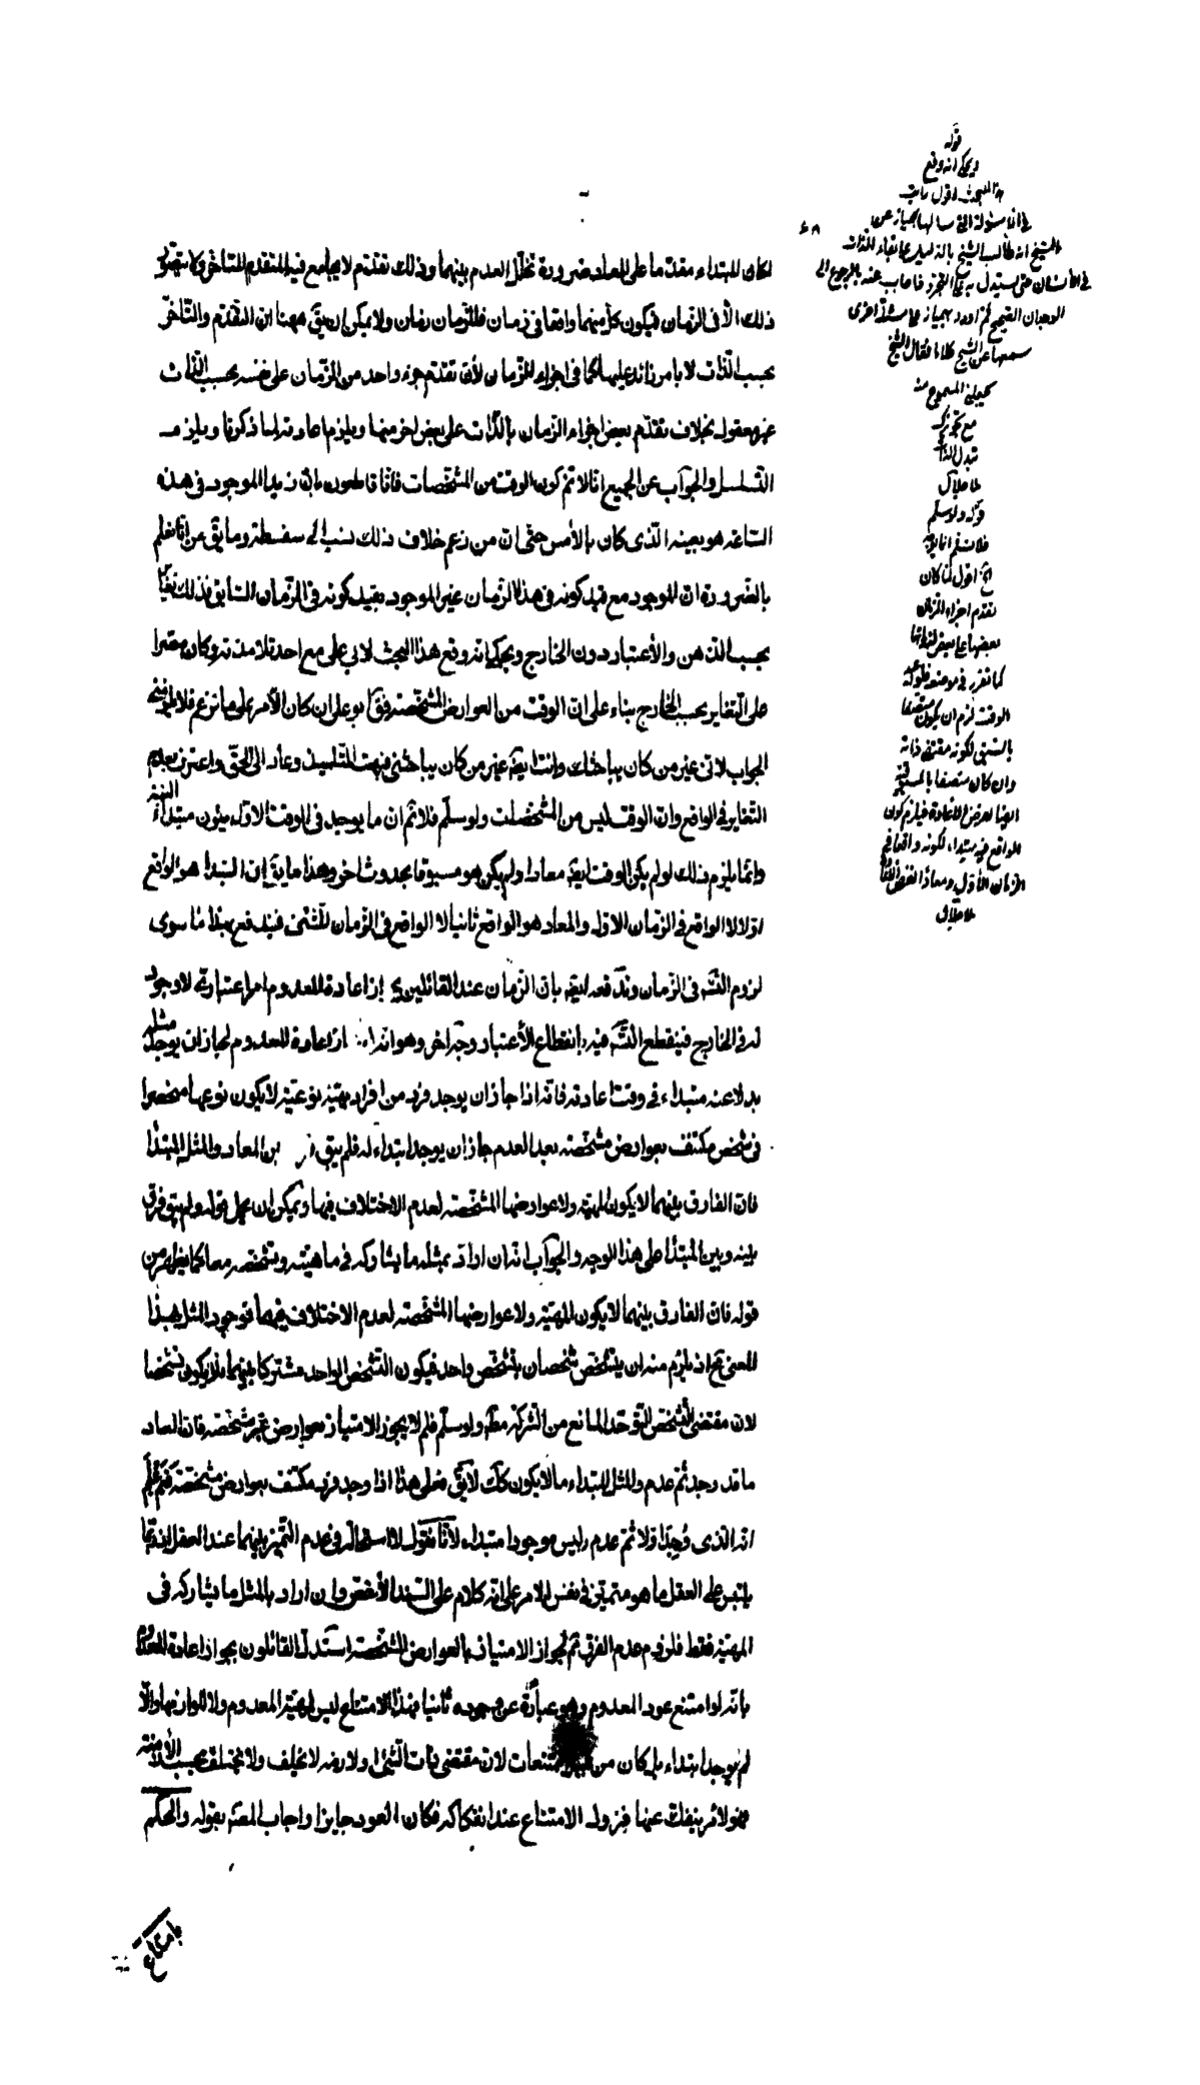 لكان المبتداء مقدما على المعاد ضرورة تخلل العدم بينهما وذلك تقدم لا يجامع فيه المتقدم المتاخر ولا يتصور
ذلك الا فى الزمان فيكون كل منهما واقعا فى زمان فللزمان زمان ولا يمكن ان يقال ههنا ان التقدم والتاخر
بحسب الذات لا بامر زائد عليها كما فى اجزاء الزمان لان تقدم جزء واحد من الزمان على نفسه بحسب الذات
غير معقول بخلاف تقدم بعض اجزاء الزمان بالذات على بعض اخر منها ويلزم اعادته لما ذكرنا ويلزم
التسلسل والجواب عن الجميع انا لا نم كون الوقت من المشخصات فانا قاطعون بان زيدا الموجود فى هذه
الساعة هو بعينه الذى كان بالامس حتى ان من زعم خلاف ذلك نسب الى سفسطة وما يق من انا نعلم
بالضرورة ان الموجود مع قيد كونه فى هذا الزمان غير الموجود بقيد كونه فى الزمان السابق فذلك تغاير
بحسب الذهن والاعتبار دون الخارج ويحكى انه وقع هذا البحث لابى على مع احد تلامذته وكان مصرا
على التغاير بحسب الخارج بناء على ان الوقت من العوارض المشخصة فق ابو على ان كان الامر على ما تزعم فلا يلزمنى
الجواب لانى غير من كان يباحثك وانت ايضا غير من كان يباحثنى فبهت التلميذ وعاد الى الحق واعترف بعدم
التغاير فى الواقع وان الوقت ليس من المشخصات ولو سلم فلا نم ان ما يوجد فى الوقت الاول يكون مبتداء البتة
وانما يلزم ذلك لو لم يكن الوقت ايضا معادا ولم يكن هو مسبوقا بحدوث اخر وهذا ما يق ان المبتدا هو الواقع
اولا لا الواقع فى الزمان الاول والمعاد هو الواقع ثانيا لا الواقع فى الزمان الثانى فيندفع بهذا ما سوى
لزوم التس فى الزمان وتدفعه ايضا بان الزمان عند القائلين باعادة المعدوم امر اعتبارى لا وجود
له فى الخارج فينقطع التس فيه بانقطاع الاعتبار وجه اخر وهو انه لو اعادة المعدوم لجاز ان يوجد مثله
بدلا عنه مبتداء فى وقت اعادته فانه اذا جاز ان يوجد فرد من افراد مهية نوعية لا يكون نوعها منحصرا
فى شخص مكتنف بعوارض مشخصة بعد العدم جاز ان يوجد ابتداء له فلم يبق بين المعاد والمثل المبتدا
فان الفارق بينهما لا يكون المهية ولا عوارضها المشخصة لعدم الاختلاف فيها ويمكن ان يحمل قوله ولم يبق فرق
بينه وبين المبتدا على هذا الوجه والجواب انه ان اراد بمثله ما يشاركه فى ماهيته وتشخصه معا كما يظهر من
قوله فان الفارق بينهما لا يكون المهية ولا عوارضها المشخصة لعدم الاختلاف فيهما فوجود المثل بهذا
المعنى مح اذ يلزم منه ان يتشخص شخصان بتشخص واحد فيكون التشخص الواحد مشتركا بينهما فلا يكون تشخصا
لان مقتضى التشخص التوحد المانع من الشركة مط ولو سلم فلم لا يجوز الامتياز بعوارض غير مشخصة فان المعاد
ما قد وجد ثم عدم والمثل المبتداء ما لا يكون كك لا يق فعلى هذا اذا وجد فرد مكتنف بعوارض مشخصة فبم يعلم
انه الذى وجد اولا ثم عدم وليس موجودا مبتداء لانا نقول لا استحالة فى عدم التميز بينهما عند العقل اذ ربما
يلتبس على العقل ما هو متميز فى نفس الامر على انه كلام على السند الاخص وان اراد بالمثل ما يشاركه فى
المهية فقط فلزوم عدم الفرق مم لجواز الامتياز بالعوارض المشخصة استدل القائلون بجواز اعادة المعدوم
بانه لو امتنع عود المعدوم وهو عبارة عن وجوده ثانيا فهذا الامتناع ليس لمهية المعدوم ولا للوازمها والا
لم يوجد ابتداء بل كان من الممتنعات لان مقتضى ذات الشئ او لازمه لا يتخلف ولا يختلف بحسب الازمنة
فهو لامر ينفك عنها فيزول الامتناع عند انفكاكه فكان العود جايزا واجاب المص بقوله والحكم
بامتناع
قوله
ويحكى انه وقع
هذا البحث اقول
الشيخ انه طالب الشيخ بالدليل على بقاء الذات
فى الانسان حتى يستدل به على التجرد فاجاب عنه بالرجوع الى
الوجدان الصحيح ثم اورد بهمنيار
سمعها عن الشيخ كلاما فقال الشيخ
مع تجويزك
تبدل الذات
قوله ولو سلم
فلا نسلم ان ما يوجد
اقول لما كان
تقدم اجزاء الزمان
بعضها على بعض لذواتها
كما تقرر فى موضعه فلو اعيد
الوقت لزم ان يكون متصفا
بالسبق لكونه مقتضى ذاته
وان كان متصفا بالمسبوقية
ايضا لعروض الاعادة فيلزم كون
الواقع فيه مبتداء لكونه واقعا فى
الزمان الاول ومعادا